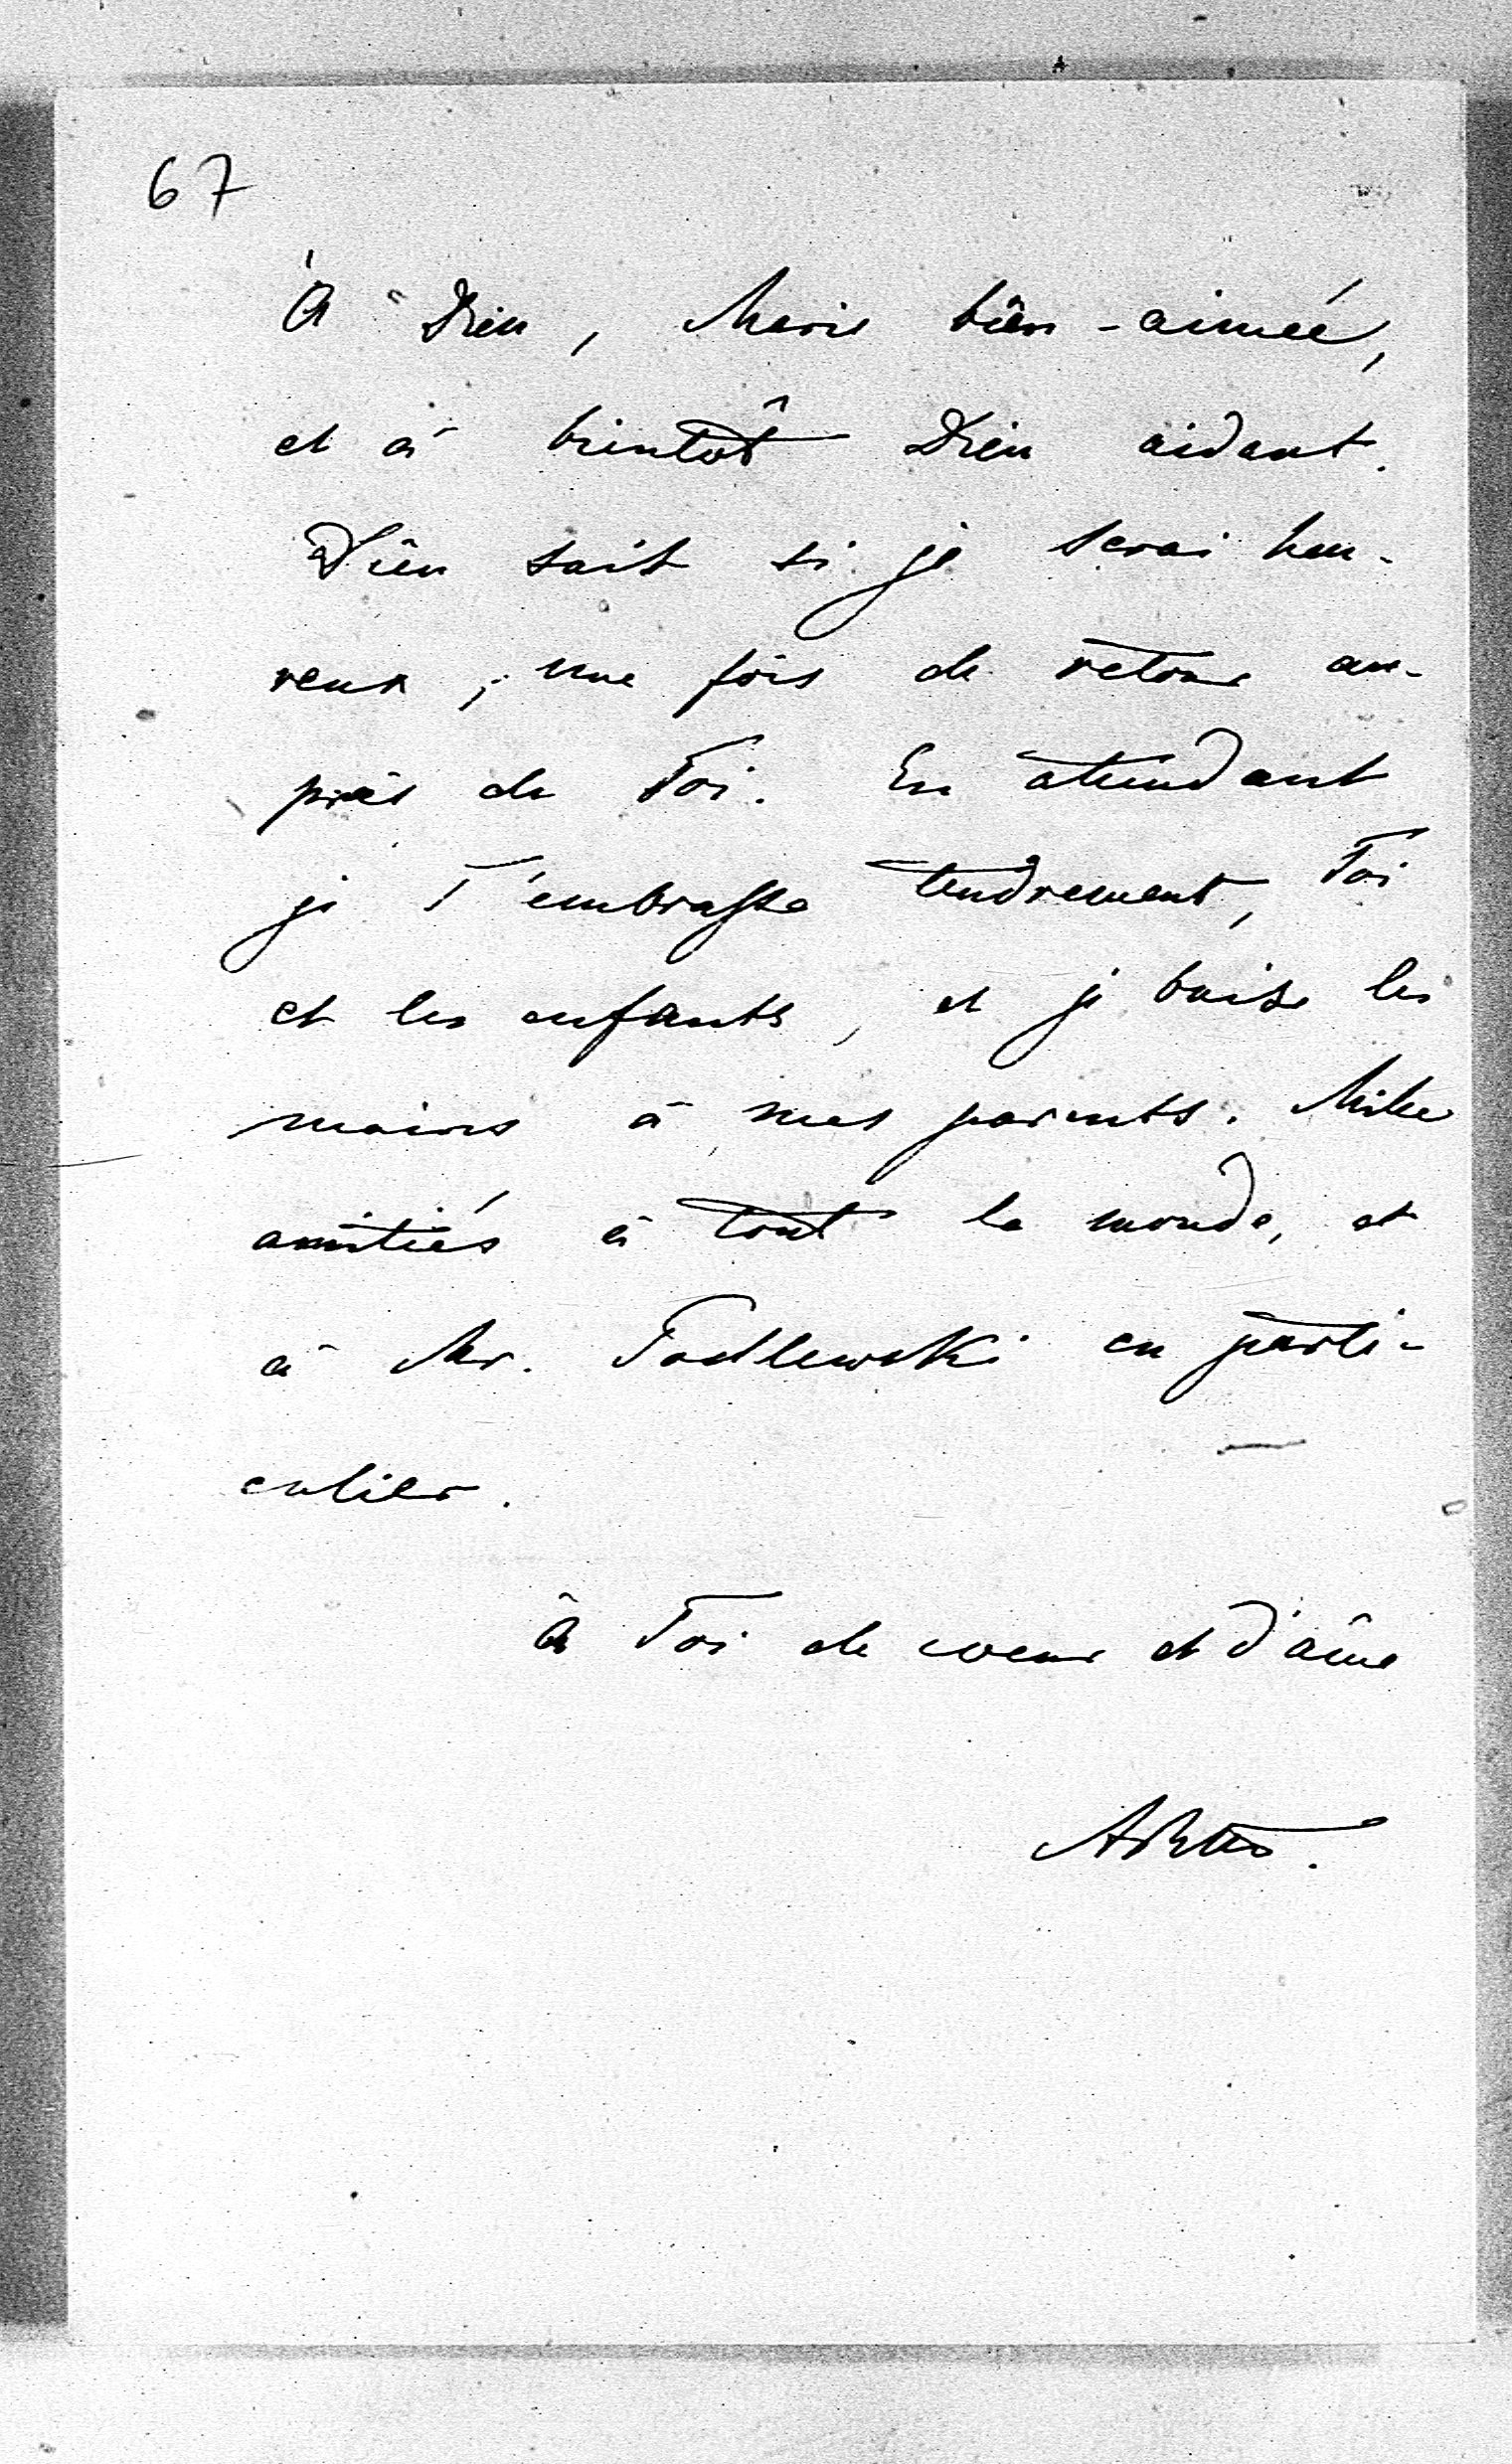 67
À Dieu, Marie bien-aimée,
et à bientôt Dieu aidant.
Dieu sait si je serai heu-
reux, une fois de retour au-
près de Toi. En attendant
je T'embrasse tendrement, Toi
et les enfants, et je baise les
mains à mes parents. Mille
amitiés à tout le monde, et
à Mr. Podlewski en parti-
culier.
À Toi de coeur et d'âme